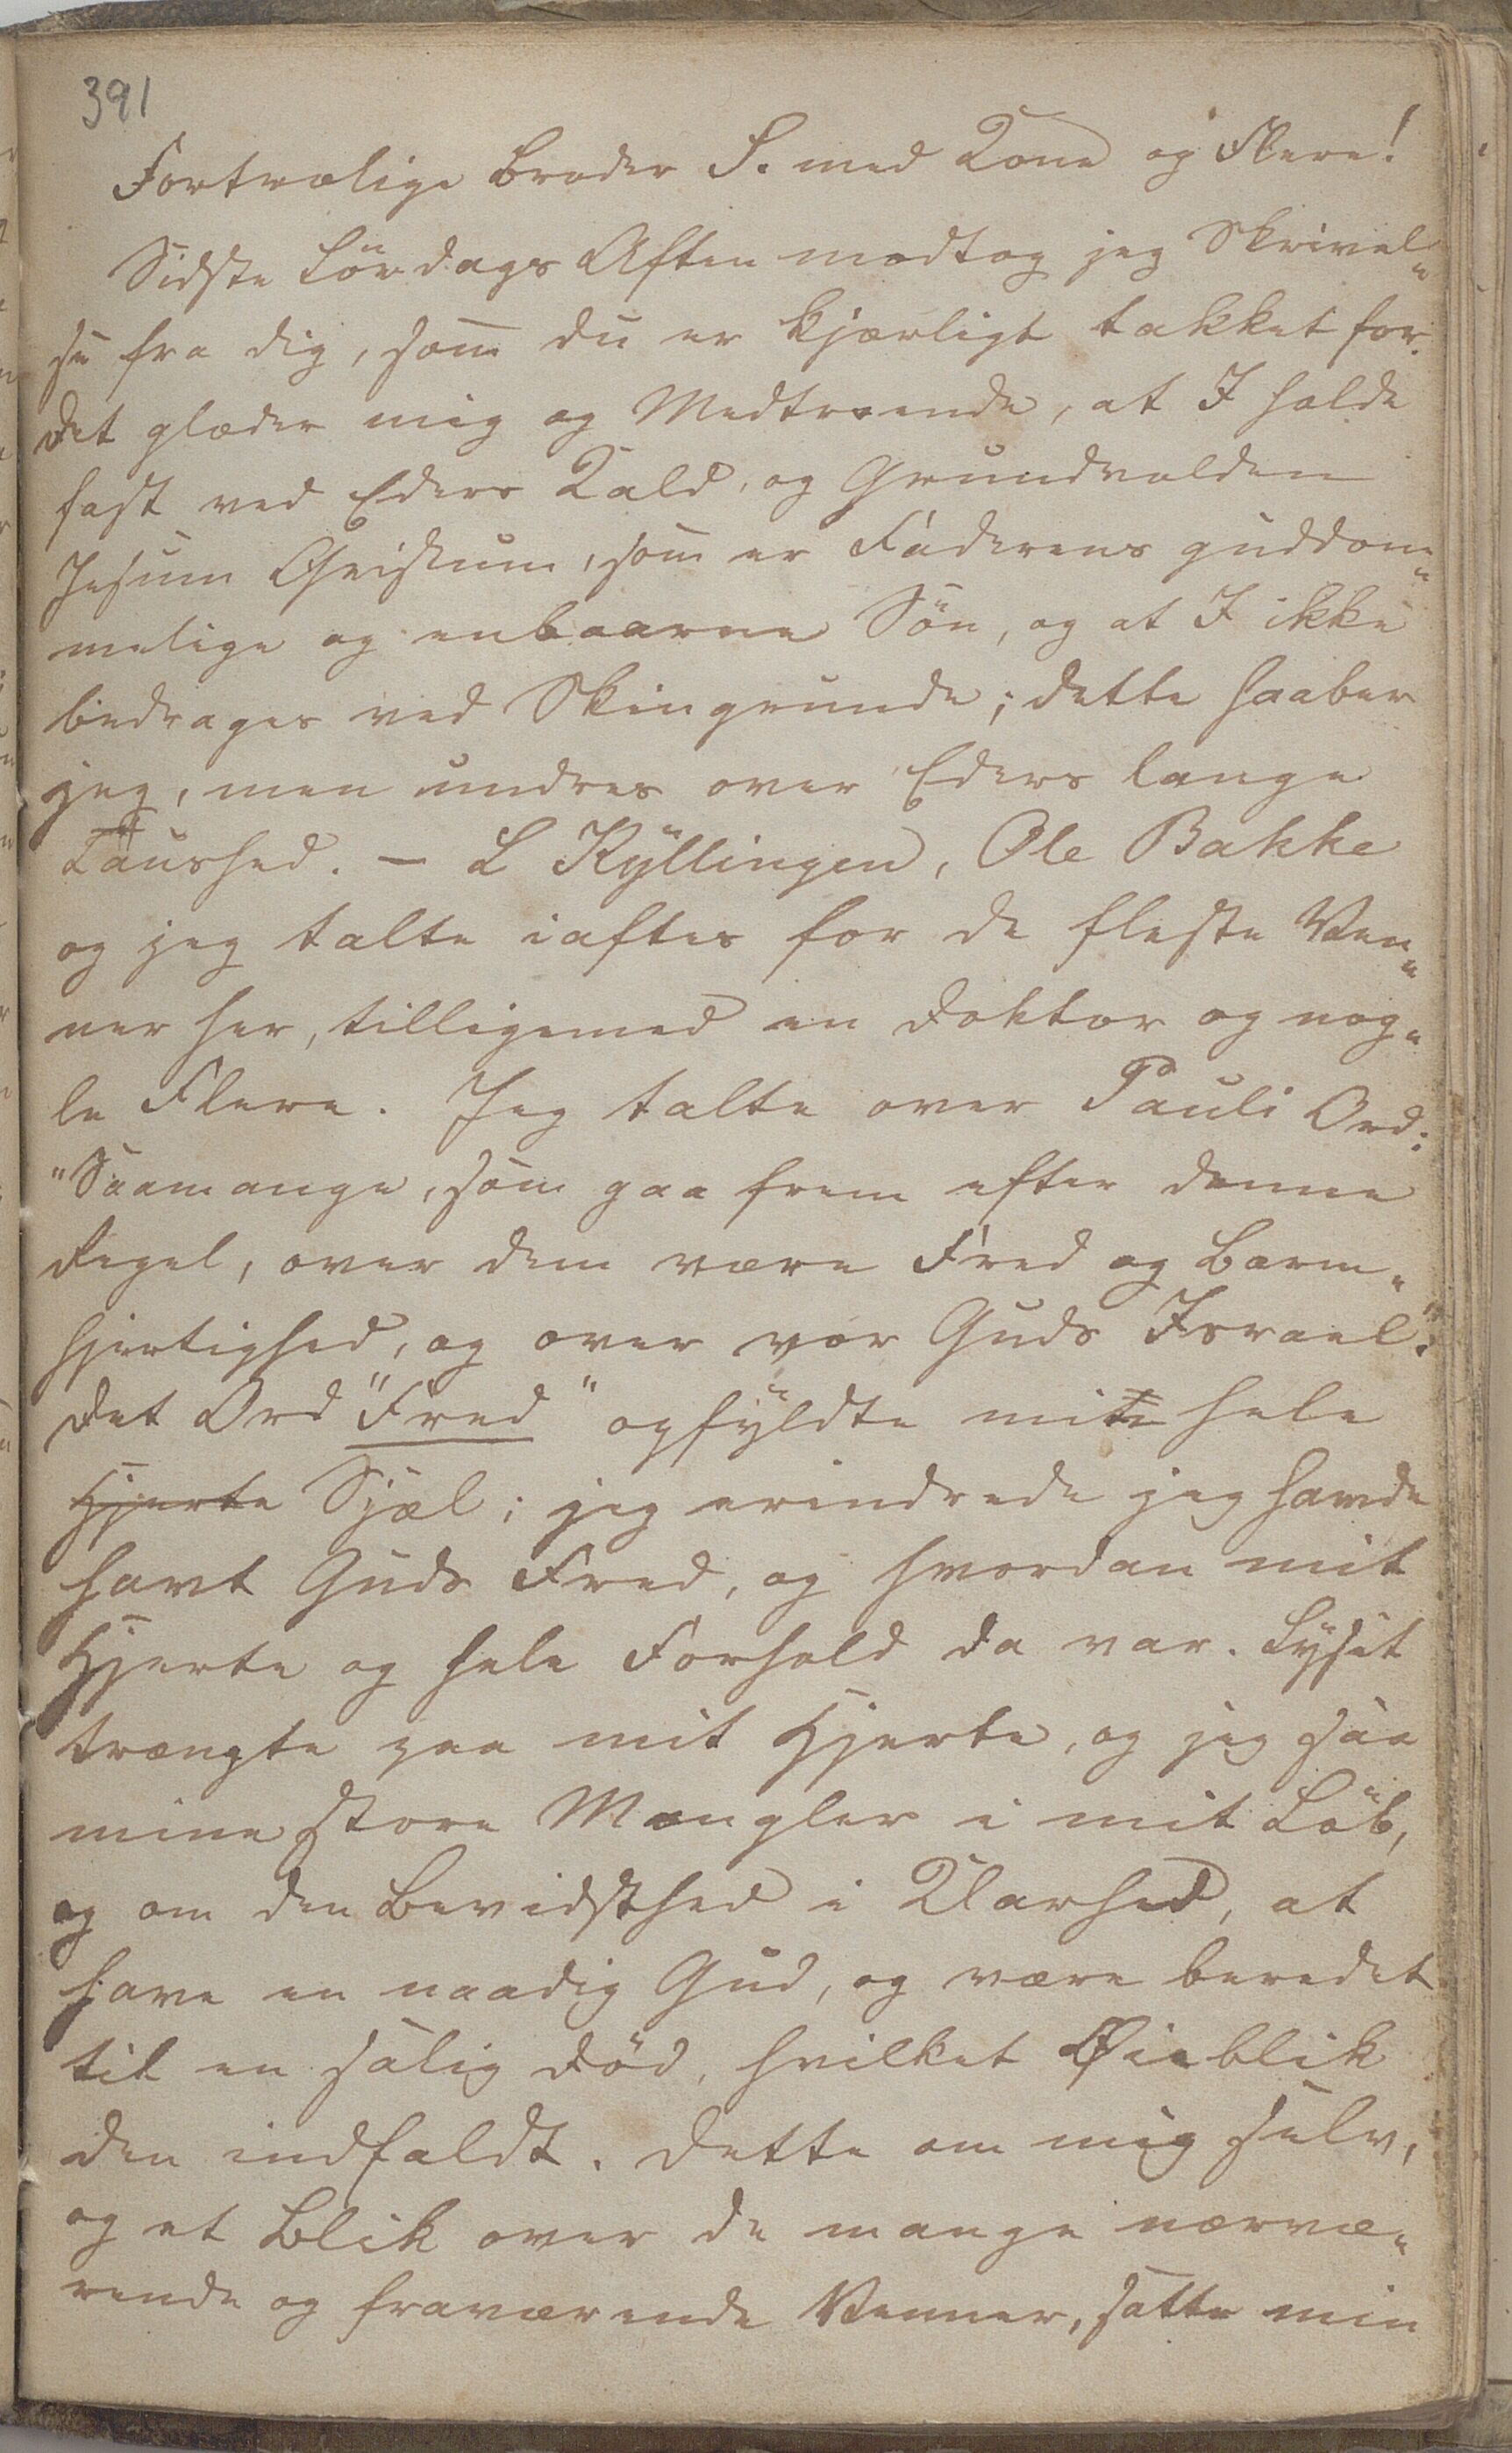 391
Fortrolige Broder S. med Kone og Flere!
Sidste Lördags Aften modtog jeg Skrivel„
se fra dig, som du er kjærligt takket for.
Det glæder mig og Medtroende, at I holde
fast ved Eders Kald, og Grundvolden
Jesum Christum, som er Faderens guddom„
melige og enbaarne Sön, og at I ikke
bedrages ved Skingrunde; dette haaber
jeg, men undres over Eders lange
Taushed. – L Kyllingen, Ole Bakke
og jeg talte iaftes for de fleste Ven„
ner her, tilligemed en Doktor og nog„
le Flere. Jeg talte over Pauli Ord:
"Saamange, som gaa frem efter denne
Regel, over dem være Fred og Barm„
hjertighed, og over vor Guds Israel".
Det Ord "Fred" opfyldte min hele
Hjerte Sjæl; jeg erindrede jeg havde
havt Guds Fred, og hvordan mit
Hjerte og hele Forhold da var. Lyset
trængte paa mit Hjerte, og jeg saa
mine store Mangler i mit Löb,
og om den Bevidsthed i Klarhed, at
have en naadig Gud, og være beredet
til en salig Död, hvilket Øieblik
den indfaldt. Dette om mig selv,
og et Blik over de mange nærvæ„
rende og fraværende Venner, satte min